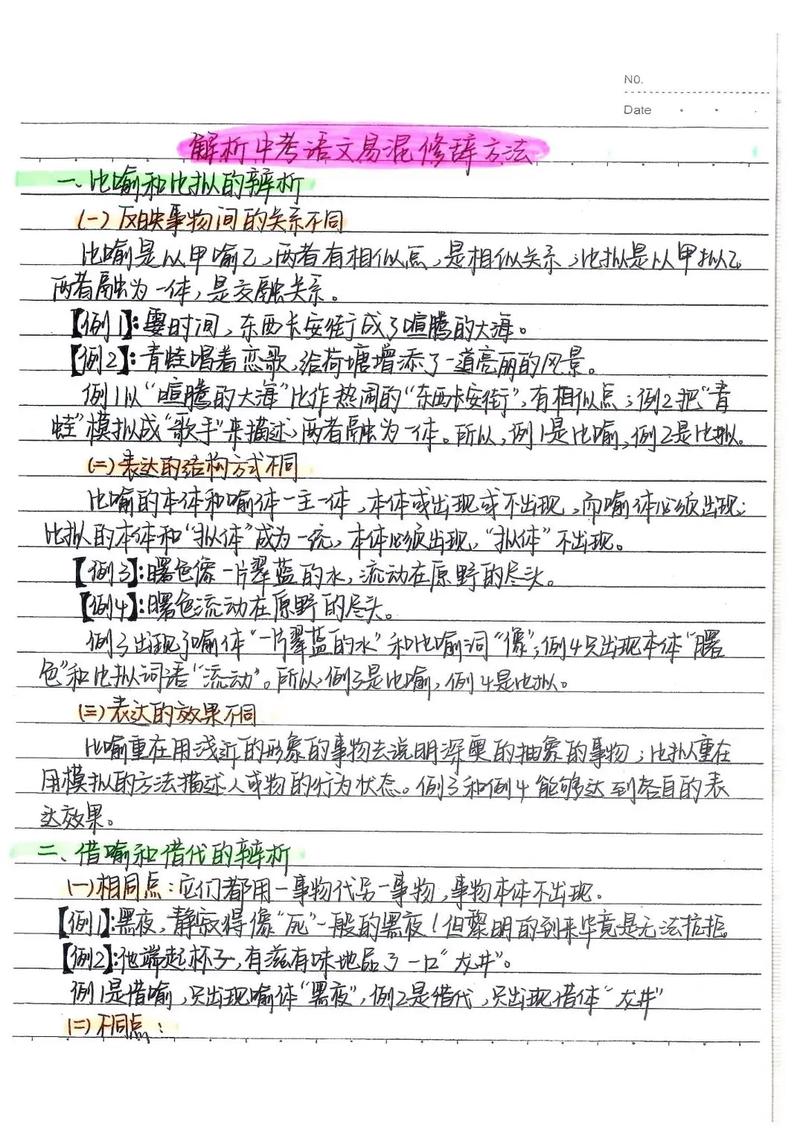 NO.
Date
解析中考语文易混修辞方法
一、比喻和比拟的辨析
(一)反映事物间的关系不同
比喻是以甲喻乙,两者有相似点,是相似关系;比拟是以甲拟乙
两者融为一体,是交融关系。
【例1】:霎时间,东西长安街成了喧腾的大海。
【例2】:青蛙唱着恋歌,给荷塘增添了一道亮丽的风景。
例1以“喧腾的大海”比作热闹的“东西长安街”,有相似点;例2把“青
蛙”模拟成“歌手”来描述,两者融为一体。所以,例1是比喻,例2是比拟。
(二)表达的结构方式不同
比喻的本体和喻体一主一体,本体或出现或不出现,而喻体必须出现;
比拟的本体和“拟体”成为一统,本体必须出现,“拟体”不出现。
【例3】:曙色像一片翠蓝的水,流动在原野的尽头。
【例4】:曙色流动在原野的尽头。
例3出现了喻体“一片翠蓝的水”和比喻词“像”;例4只出现本体“曙
色”和比拟词语“流动”。所以,例3是比喻,例4是比拟。
(三)表达的效果不同
比喻重在用浅近的形象的事物去说明深奥的抽象的事物;比拟重在
用模拟的方法描述人或物的行为状态。例3和例4能够达到各自的表
达效果。
二、借喻和借代的辨析
(一)相同点:它们都用一事物代另一事物,事物本体不出现.
【例1】:黑夜,静寂得像“死”一般的黑夜!但黎明的到来毕竟是无法抗拒。
【例2】:他端起杯子,有滋有味地品了一口“龙井”。
例1是借喻,只出现喻体“黑夜”,例2是借代,只出现借体“龙井”
(二)不同点: